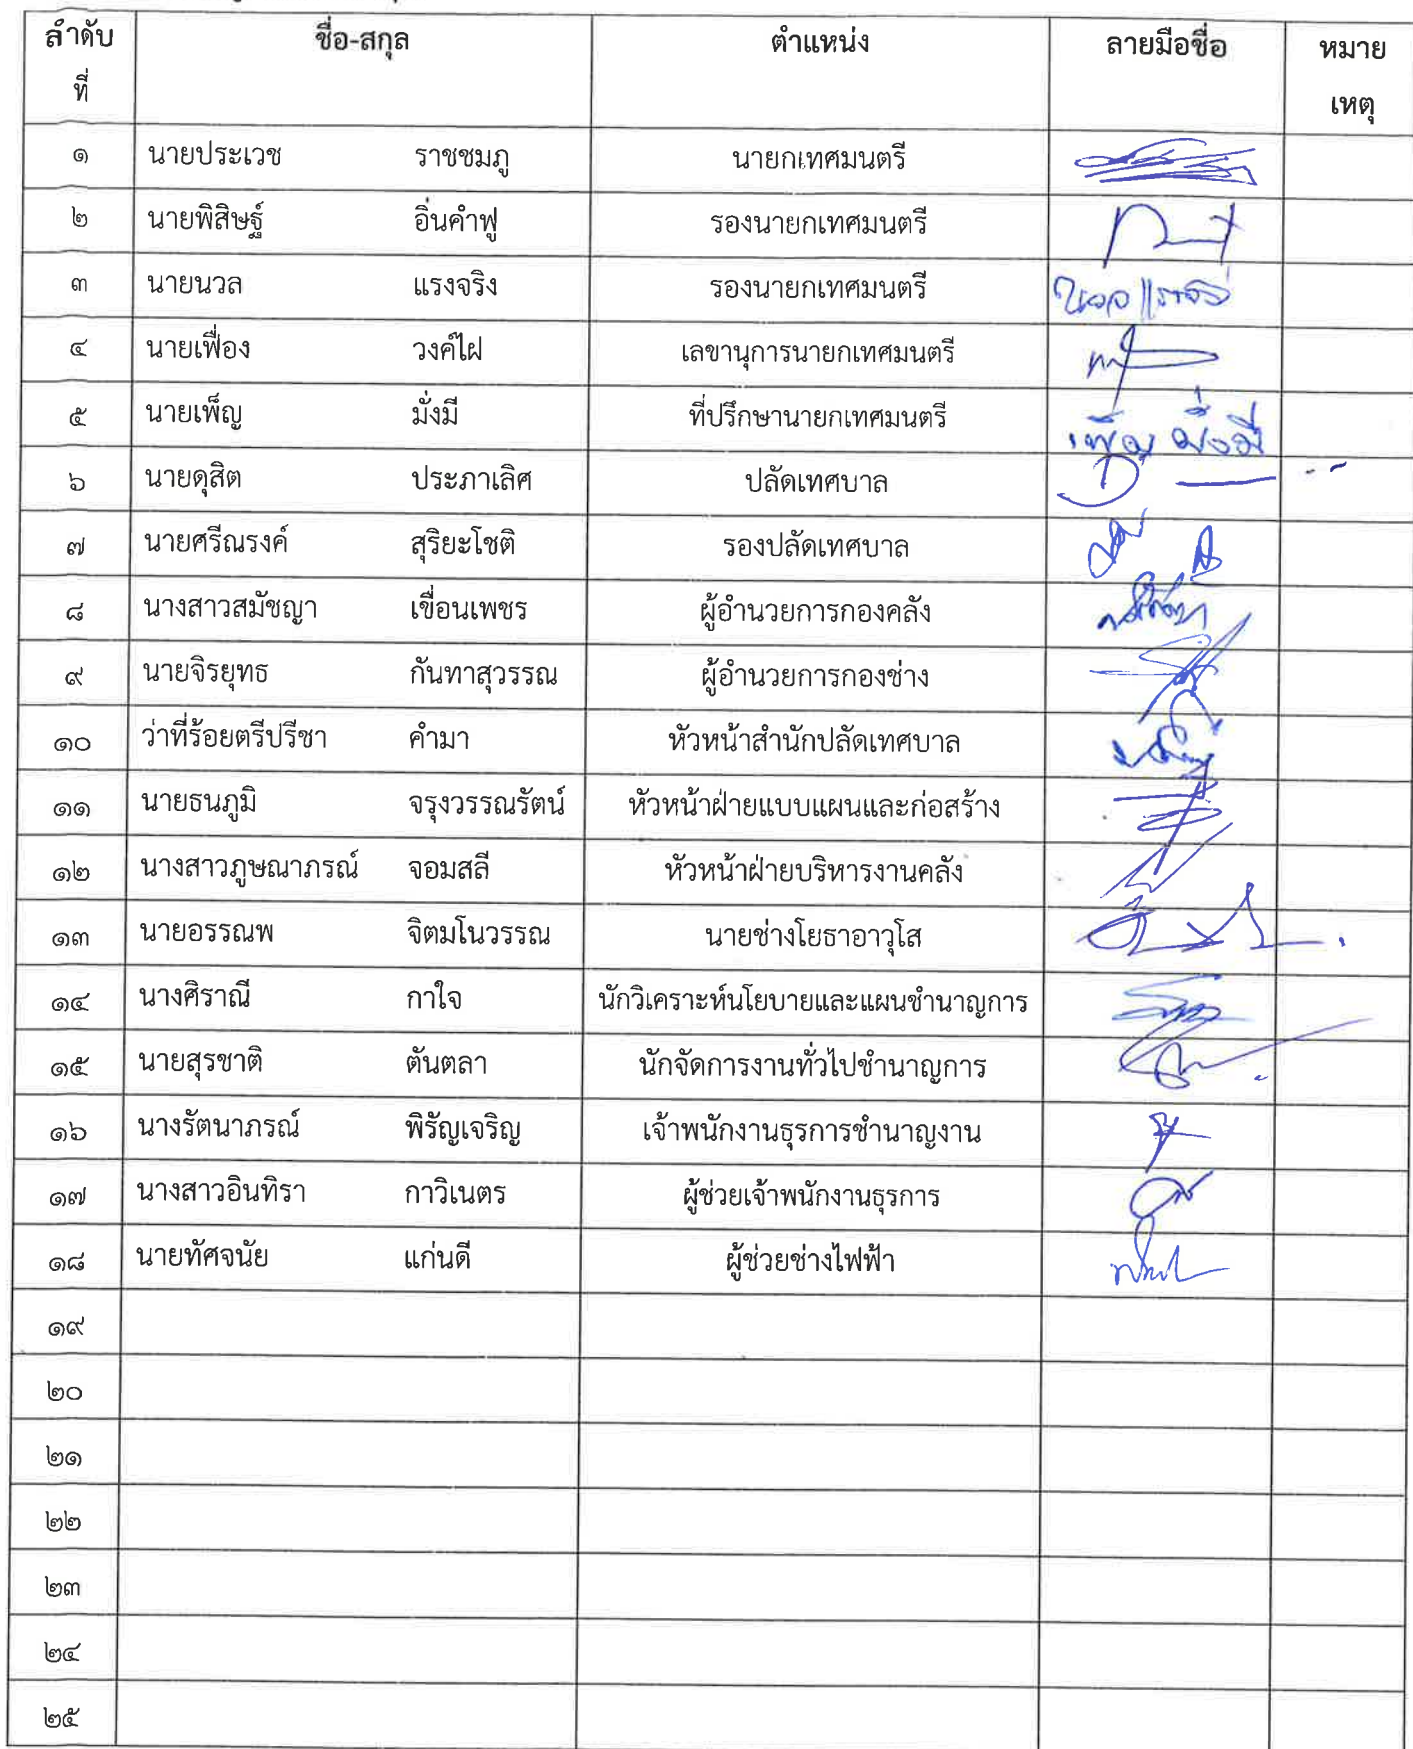 ลำดับที่ ชื่อ-สกุล ตำแหน่ง ลายมือชื่อ หมายเหตุ
๑ นายประเวช ราชชมภู นายกเทศมนตรี
๒ นายพิสิษฐ์ อิ่นคำฟู รองนายกเทศมนตรี
๓ นายนวล แรงจริง รองนายกเทศมนตรี นวล แรงจริง
๔ นายเฟื่อง วงค์ไฝ เลขานุการนายกเทศมนตรี
๕ นายเพ็ญ มั่งมี ที่ปรึกษานายกเทศมนตรี เพ็ญ มั่งมี
๖ นายดุสิต ประภาเลิศ ปลัดเทศบาล
๗ นายศรีณรงค์ สุริยะโชติ รองปลัดเทศบาล
๘ นางสาวสมัชญา เขื่อนเพชร ผู้อำนวยการกองคลัง
๙ นายจิรยุทธ กันทาสุวรรณ ผู้อำนวยการกองช่าง
๑๐ ว่าที่ร้อยตรีปรีชา คำมา หัวหน้าสำนักปลัดเทศบาล
๑๑ นายธนภูมิ จรุงวรรณรัตน์ หัวหน้าฝ่ายแบบแผนและก่อสร้าง
๑๒ นางสาวภูษณาภรณ์ จอมสลี หัวหน้าฝ่ายบริหารงานคลัง
๑๓ นายอรรณพ จิตมโนวรรณ นายช่างโยธาอาวุโส
๑๔ นางศิราณี กาใจ นักวิเคราะห์นโยบายและแผนชำนาญการ
๑๕ นายสุรชาติ ตันตลา นักจัดการงานทั่วไปชำนาญการ
๑๖ นางรัตนาภรณ์ พิรัญเจริญ เจ้าพนักงานธุรการชำนาญงาน
๑๗ นางสาวอินทิรา กาวิเนตร ผู้ช่วยเจ้าพนักงานธุรการ
๑๘ นายทัศจนัย แก่นดี ผู้ช่วยช่างไฟฟ้า
๑๙
๒๐
๒๑
๒๒
๒๓
๒๔
๒๕